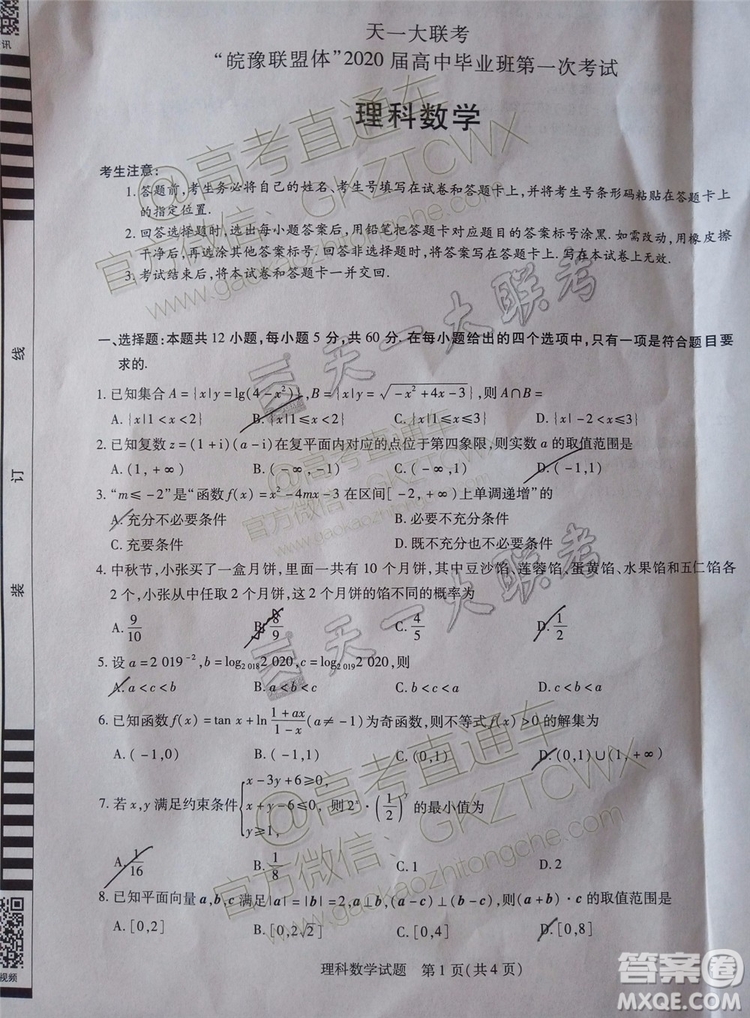 讯
天一大联考
“皖豫联盟体”2020届高中毕业班第一次考试
理科数学
考生注意:
1. 答题前,考生务必将自己的姓名、考生号填写在试卷和答题卡上,并将考生号条形码粘贴在答题卡上
的指定位置.
2. 回答选择题时,选出每小题答案后,用铅笔把答题卡对应题目的答案标号涂黑.如需改动,用橡皮擦
干净后,再选涂其他答案标号.回答非选择题时,将答案写在答题卡上.写在本试卷上无效.
3. 考试结束后,将本试卷和答题卡一并交回.
一、选择题:本题共12小题,每小题5分,共60分.在每小题给出的四个选项中,只有一项是符合题目要
求的.
1. 已知集合A={x|y=lg(4-x²)},B={x|y=√(-x²+4x-3)},则A∩B=
A. {x|1<x<2} B. {x|1≤x<2} C. {x|1≤x≤2} D. {x|1<x≤2}
2. 已知复数z=(1+i)(a-i)在复平面内对应的点位于第四象限,则实数a的取值范围是
A. (1,+∞) B. (-∞,-1) C. (-∞,1) D. (-1,1)
3. “m≤-2”是“函数f(x)=x²-4mx-3在区间[-2,+∞)上单调递增”的
A. 充分不必要条件 B. 必要不充分条件
C. 充要条件 D. 既不充分也不必要条件
4. 中秋节,小张买了一盒月饼,里面一共有10个月饼,其中豆沙馅、莲蓉馅、蛋黄馅、水果馅和五仁馅各
2个,小张从中任取2个月饼,这2个月饼的馅不同的概率为
A. 9/10 B. 8/9 C. 4/5 D. 1/2
5. 设a=2 019⁻²,b=log₂ ₀₁₈2 020,c=log₂ ₀₁₉2 020,则
A. a<c<b B. a<b<c C. b<c<a D. c<b<a
6. 已知函数f(x)=tan x+ln (1+ax)/(1-x)(a≠-1)为奇函数,则不等式f(x)>0的解集为
A. (-1,0) B. (-1,1) C. (0,1) D. (0,1)∪(1,+∞)
7. 若x,y满足约束条件{x-3y+6≥0, x+y-6≤0, y≥1,则2ˣ·(1/2)ʸ的最小值为
A. 1/16 B. 1/8 C. 1 D. 2
8. 已知平面向量a,b,c满足|a|=|b|=2,a⊥b,(a-c)⊥(b-c),则(a+b)·c的取值范围是
A. [0,2] B. [0,2√2] C. [0,4] D. [0,8]
理科数学试题 第1页(共4页)
线
订
装
视频
@高考直通车
官方微信:GKZTCWX
www.gaokaozhitongche.com
天一大联考
天一大联考
@高考直通车
官方微信:GKZTCWX
www.gaokaozhitongche.com
答案圈
MXQE.COM